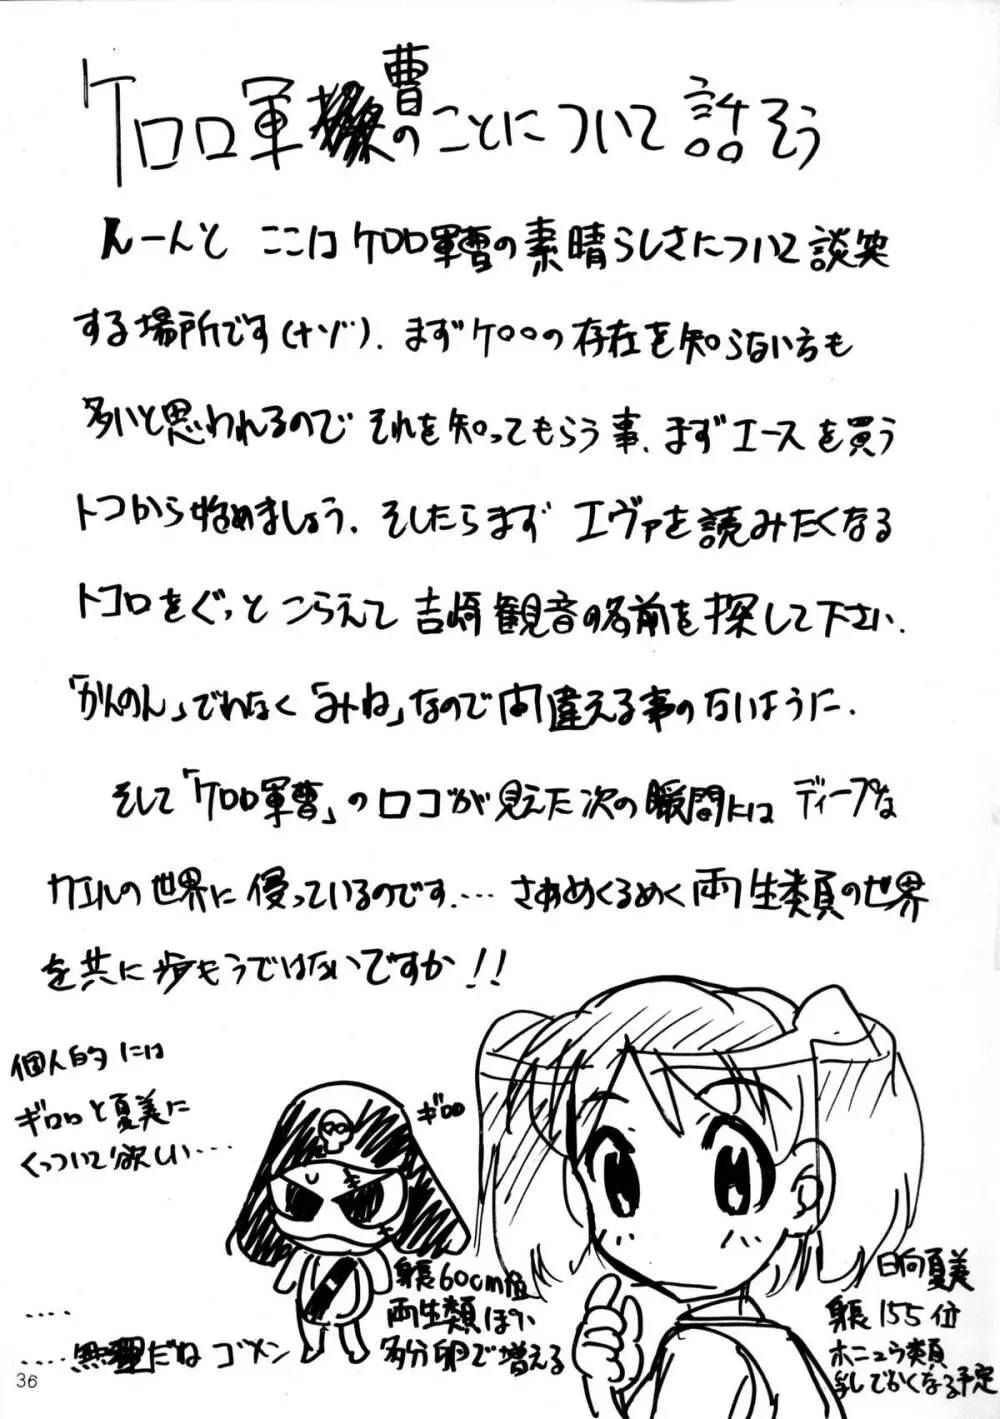 「ケロロ軍曹のことについて話そう
えーんと ここはケロロ軍曹の素晴らしさについて談笑
する場所です(ナゾ). まずケロロの存在を知らない方も
多いと思われるのでそれを知ってもらう事、まずエースを買う
トコから始めましょう. そしたらまず エヴァを読みたくなる
トコロをぐっと こらえて 吉崎観音の名前を探して下さい.
「かんのん」でわなく「みね」なので間違える事のないように.
そして「ケロロ軍曹」のロゴが見えた次の瞬間にはディープな
カエルの世界に侵っているのです..... さあめくるめく両生類の世界
を共に歩もうではないですか!!
個人的には
ギロロと夏美に
くっついて欲しい....
ギロロ
身長60cm位
両生類ぽい
多分卵で増える
日向夏美
身長155位
ホニュウ類
乳でかくなる予定
....
.....無理だね ゴメン
36